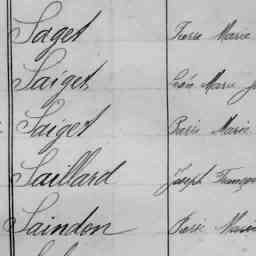 Saget Pierre Marie
Saiget Marie
Saiget Marie
Saillard Joseph François
Saindon Marie